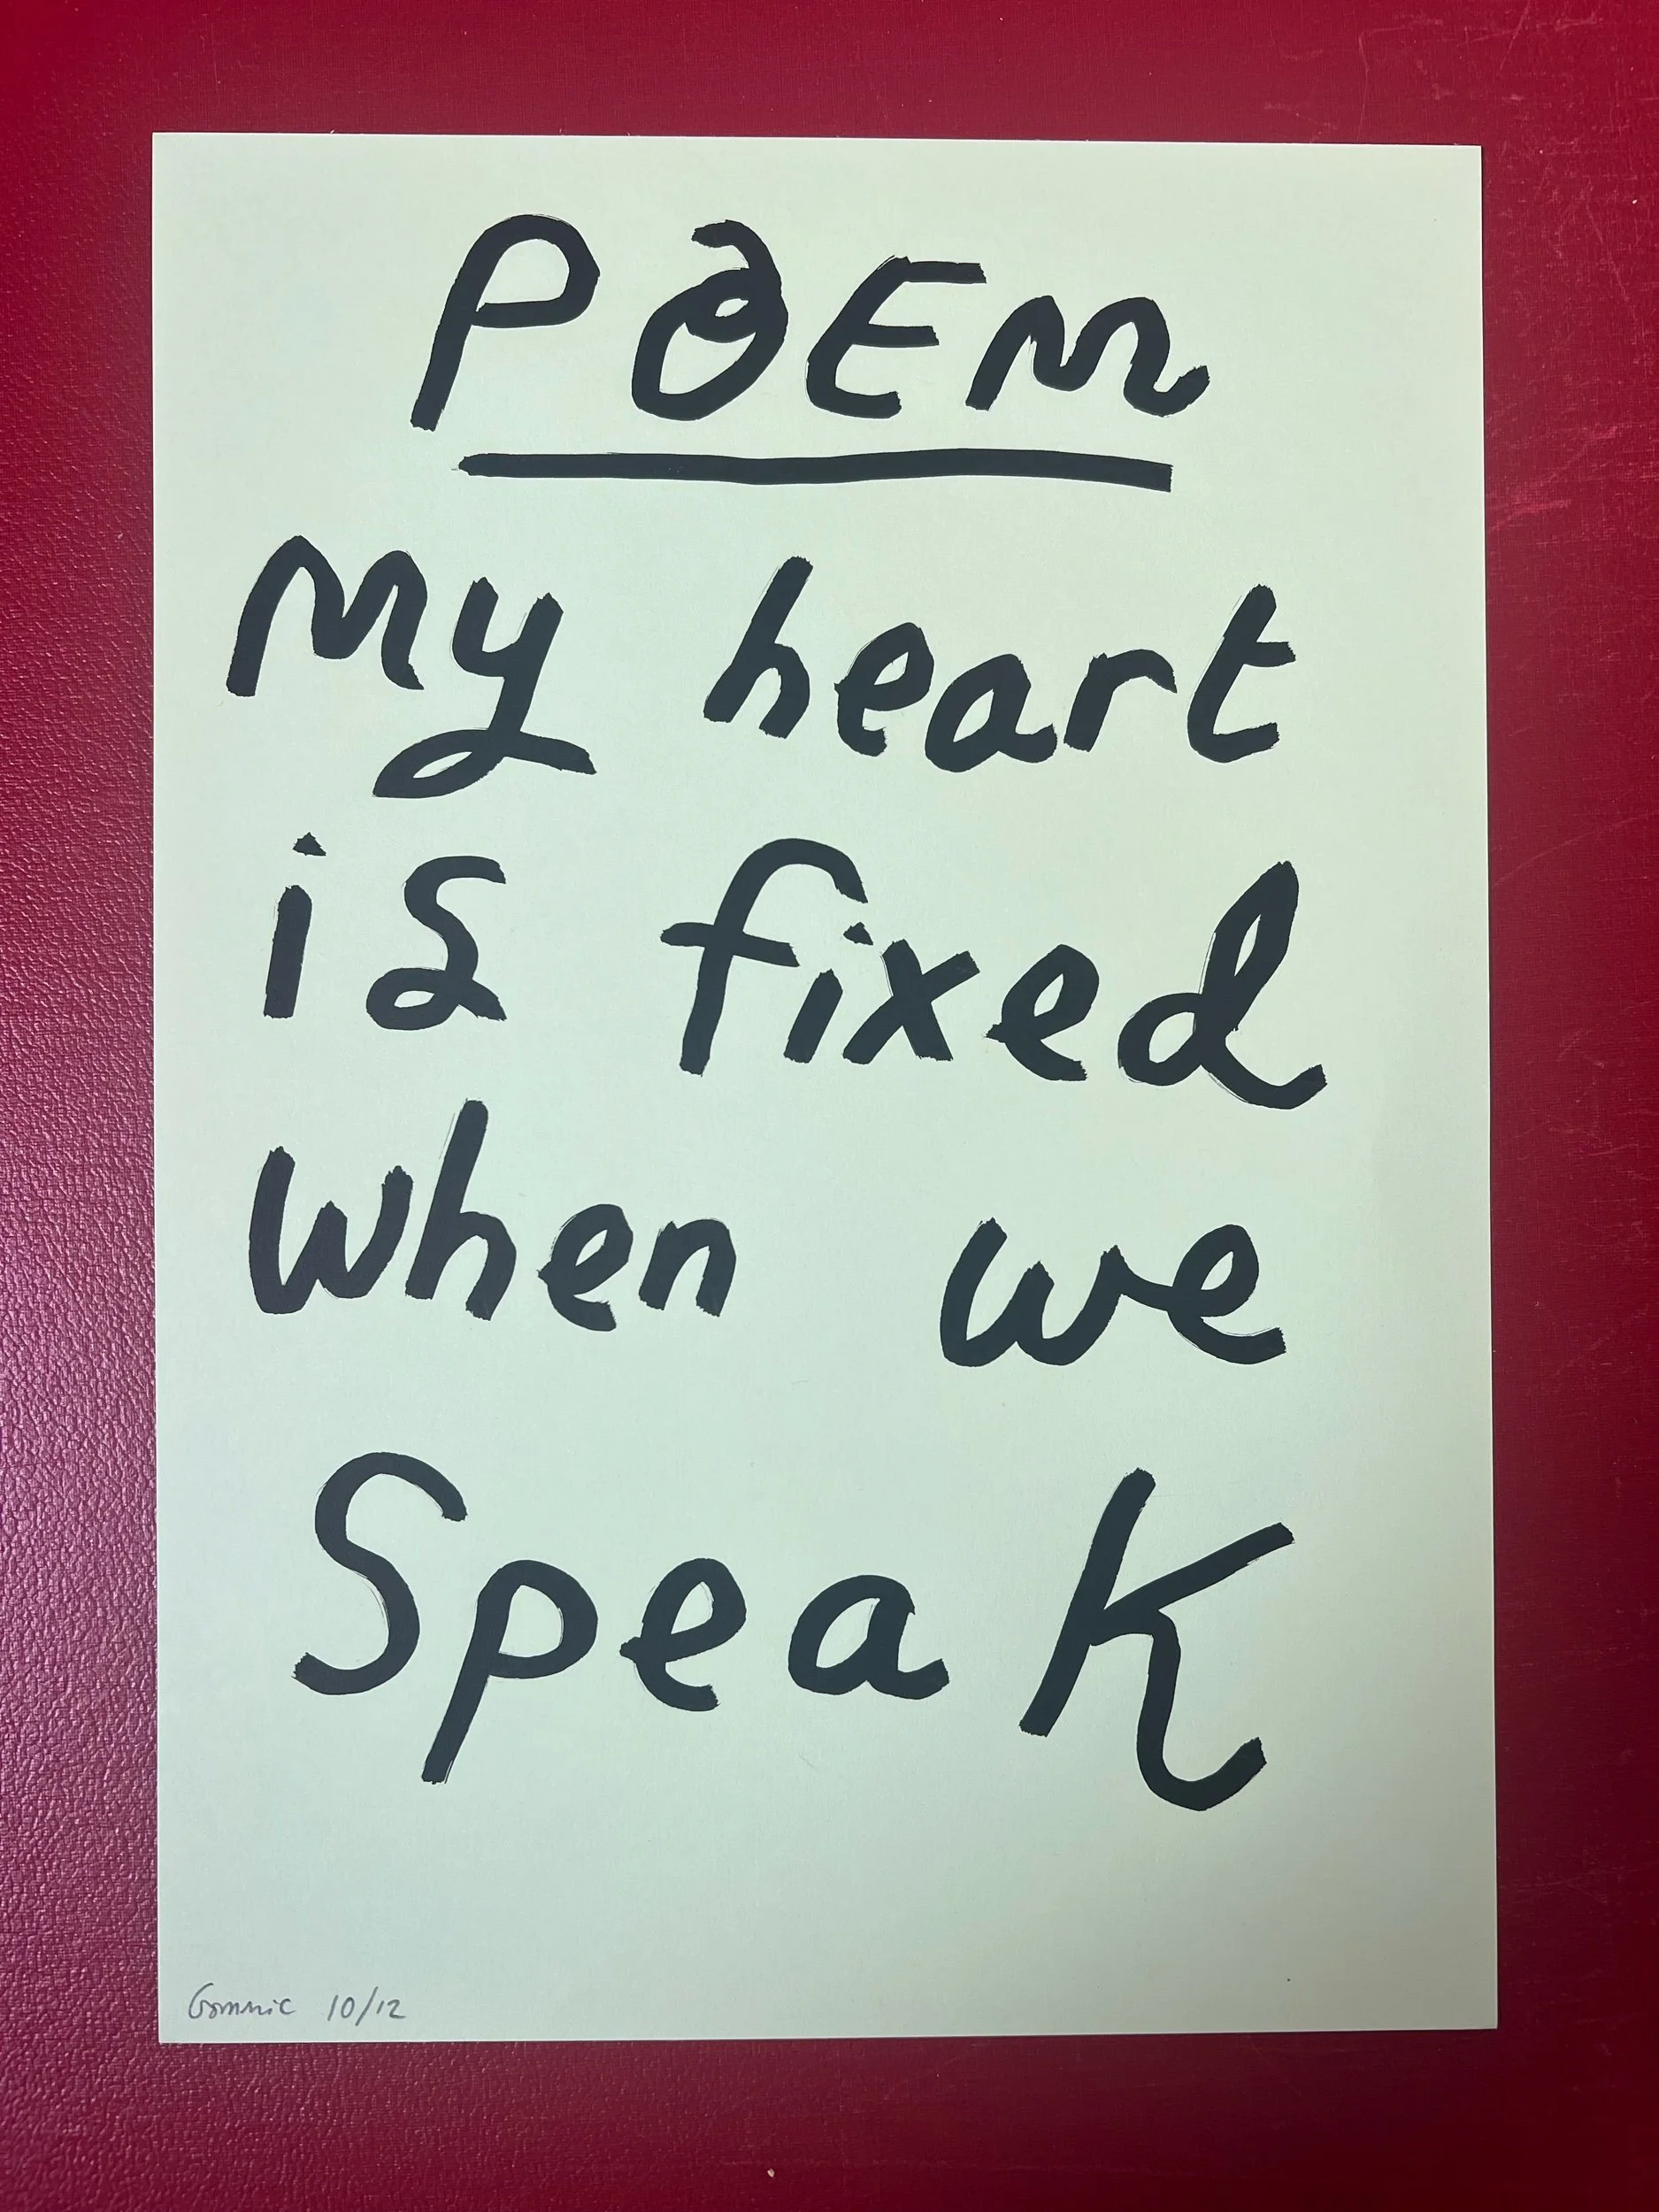 POEM
My heart
is fixed
when we
SpeaK
Gommie 10/12